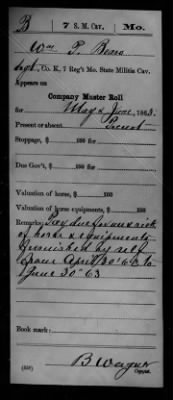 B | 7 S. M. Cav. | Mo.
Wm P.
Sgt., Co. K, 7 Reg't Mo. State Militia Cav.
Appears on
Company Muster Roll
for May & June, 1863.
Present or absent, Present
Stoppage, $ 100 for
Due Gov't, $ 100 for
Valuation of horse, $ 100
Valuation of horse equipments, $ 100
Remarks: Pay due for use & risk
of horse & equipments
furnished by self
from April 30" 63 to
June 30" 63
Book mark:
B Wagner
(358) Copyist.